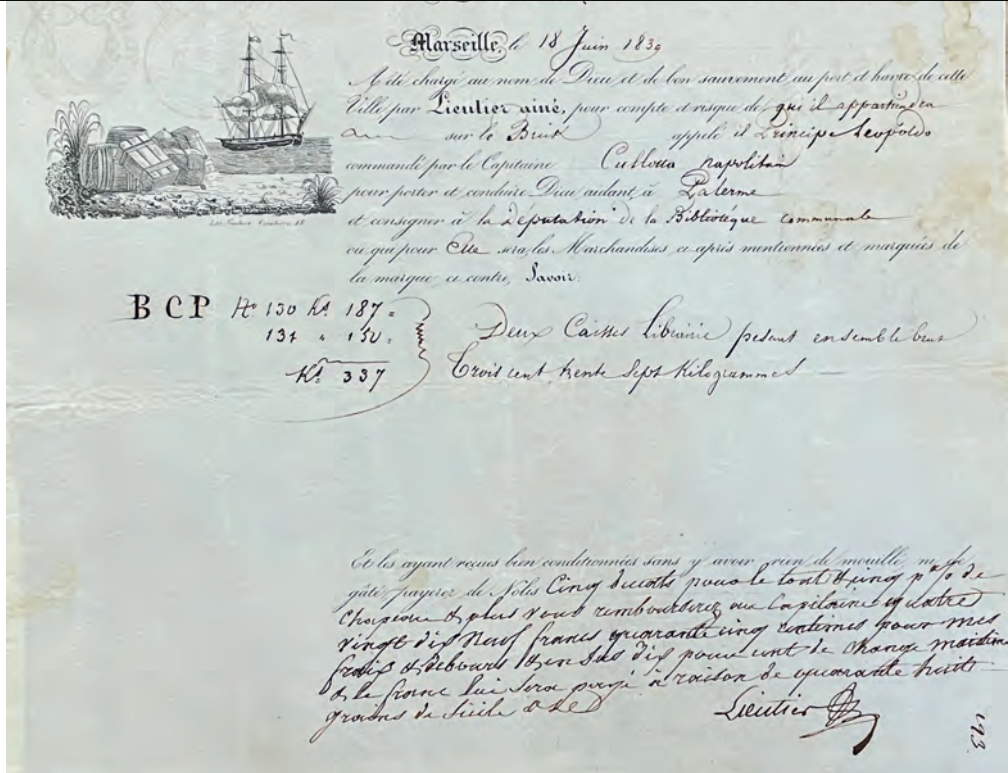 Marseille, le 18 Juin 1839
A été chargé au nom de Dieu et de bon sauvement au port et havre de cette
Ville par Lieutier ainé, pour compte et risque de qui il appartiendra
sur le Brick appelé il Principe Leopoldo
commandé par le Capitaine napolitain
pour porter et conduire, Dieu aidant, à Palerme
et consigner à la Députation de la Bibliotéque communale
ou qui pour Elle sera, les Marchandises ci après mentionnées et marquées de
la marque ci contre, Savoir:
B C P No 130 Ks 187 =
131 " 150 =
Ks 337
Deux Caisses Librairie pesant ensemble brut
Trois cent trente sept Kilogrammes
Et les ayant reçues bien conditionnées sans y avoir rien de mouillé, ni de
gâté, payerez de Nolis Cinq ducats pour le tout & cinq p% de
Chapeau & plus vous rembourserez au Capitaine quatre
vingt dix Neuf francs quarante cinq centimes pour mes
fraix & debours & en sus dix pour cent de change maritime
& le franc lui sera payé à raison de quarante huit
grains de Sicile
Lieutier
193